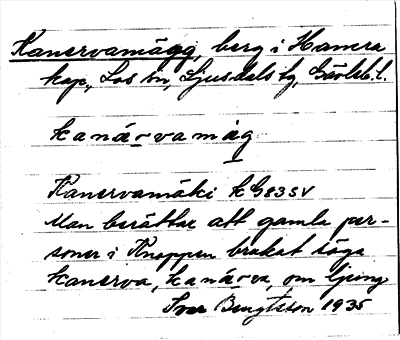 Kanervamägg, berg i Hamra
kap., Los sn, Ljusdals tg, Gävleb. l.
kanárvamäg
Kanervamäki k G83SV
Man berättar att gamla per-
soner i Knoppen brukat säga
kanerva, kanárva, om ljung
Ivar Bengtsson 1935